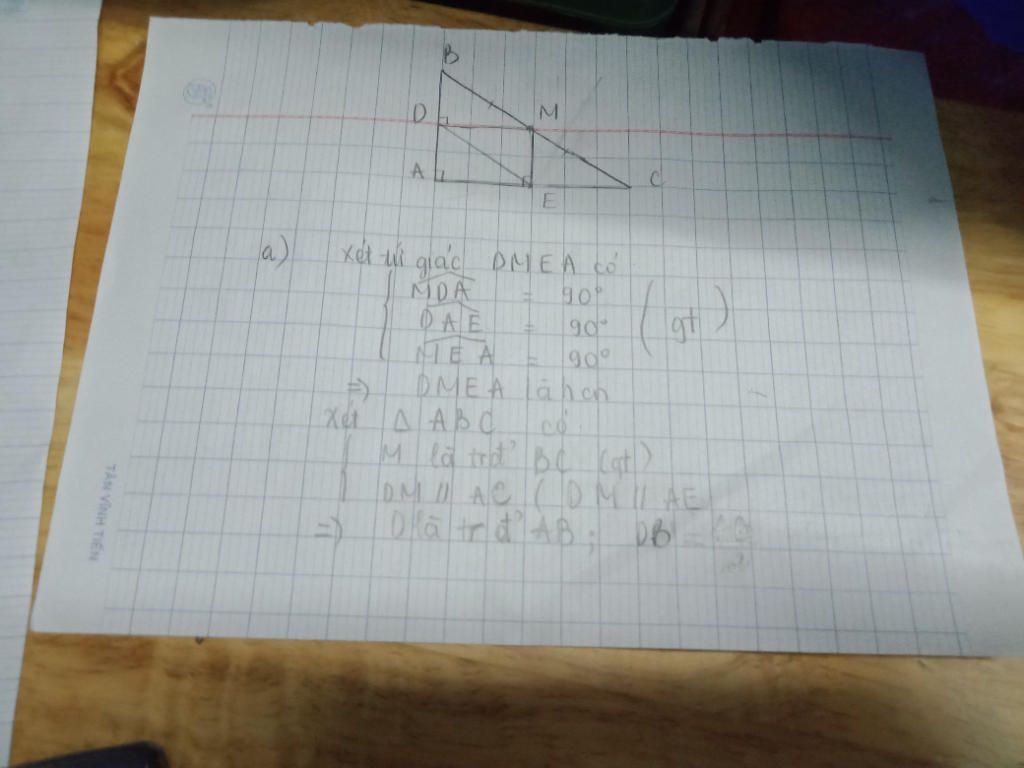 B
D M
A E C
a) Xét tứ giác DMEA có
MDA = 90°
DAE = 90° (gt)
MEA = 90°
=> DMEA là hcn
Xét Δ ABC có
M là trđ' BC (gt)
DM // AC ( DM // AE
=> D là trđ' AB ; DB =
TÂN VĨNH TIẾN